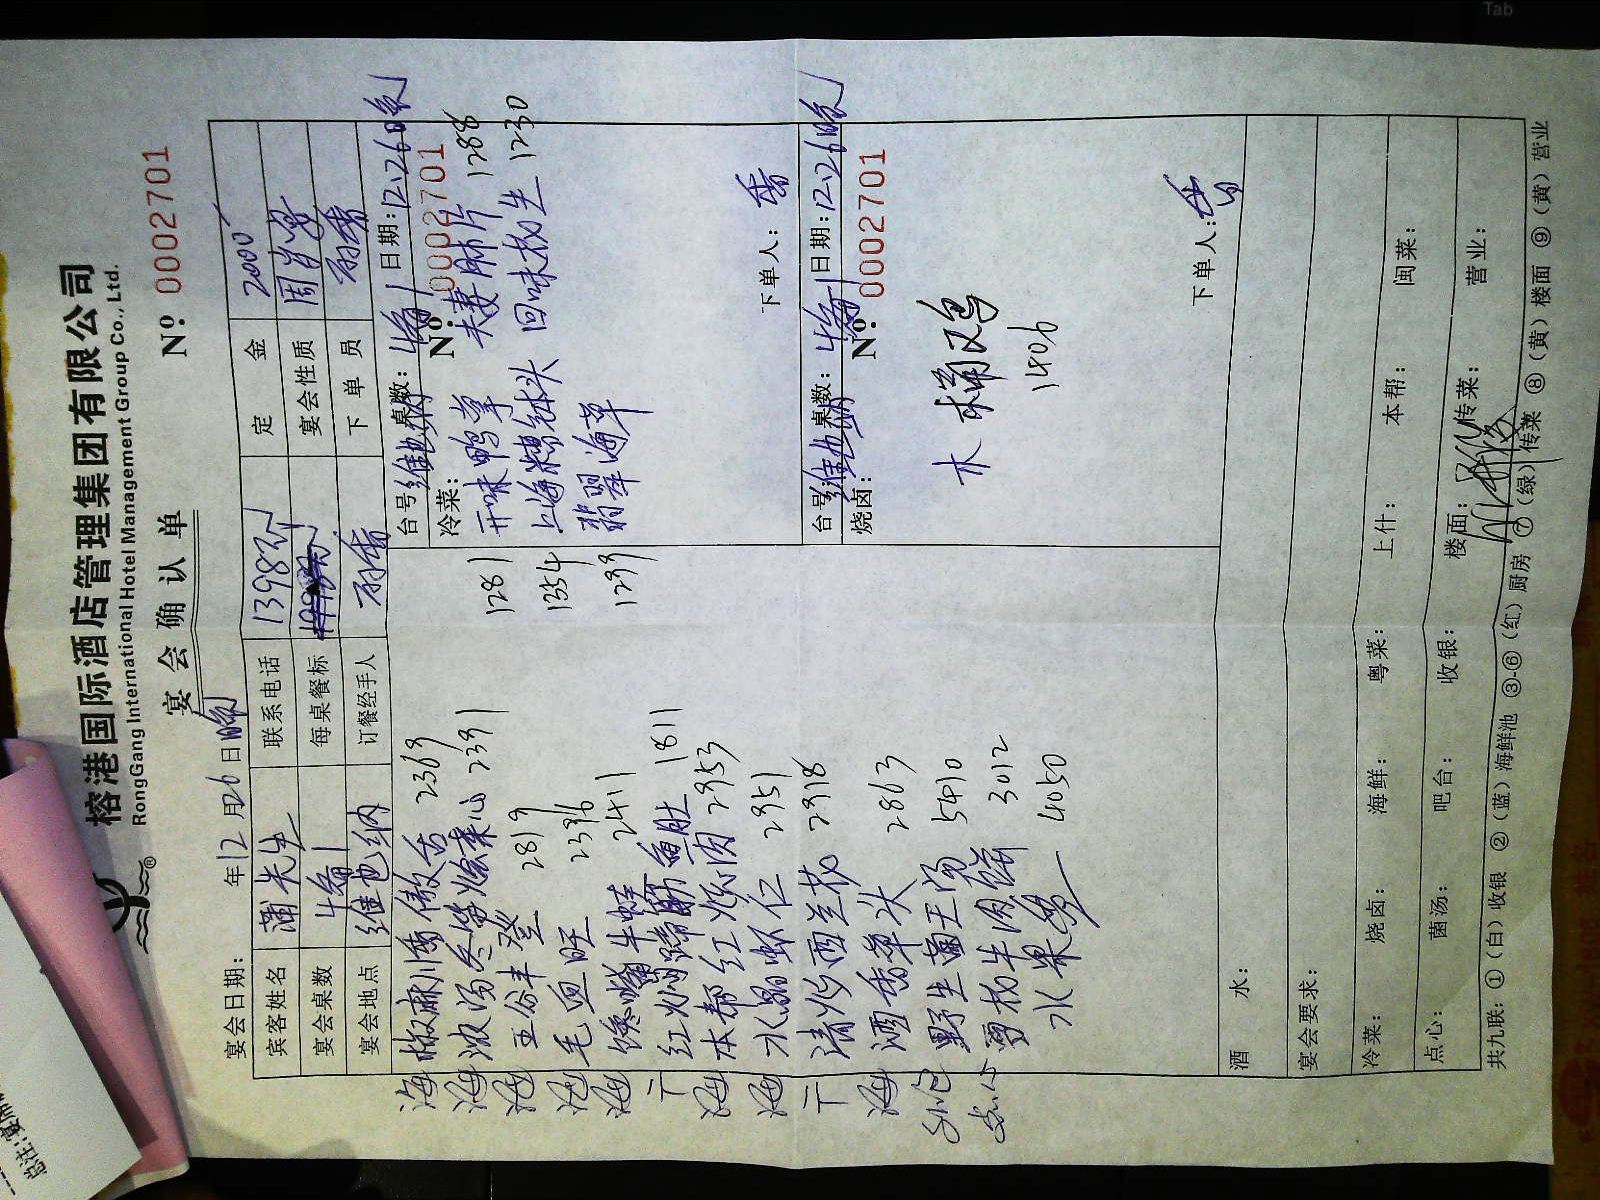 榕港国际酒店管理集团有限公司
RongGang International Hotel Management Group Co., Ltd.
宴会确认单
№ 0002701
宴会日期: 年12月26日晚
宾客姓名 蒲先生 联系电话 定金 2000
宴会桌数 每桌餐标 宴会性质
宴会地点 维也纳 订餐经手人 下单员
海 椒麻川香傲舌 2369
海 浓汤冬笋烩菜心 2391
海 五谷丰登 2819
海 毛血旺 2376
海 馋嘴牛蛙 2411
红焖蹄筋鱼肚 1811
海 本帮红烧肉 2953
海 水晶虾仁 2951
清炒西兰花 2918
海 酒香草头 2863
野生菌王汤 5410
点心 牛肉饼 3012
水果 4050
台号: 桌数: 日期:12.26晚
№ 0002701
冷菜:
开味鸭掌 1281 夫妻肺片 1288
上海糟钵头 1354 回味 1230
翡翠海草 1299
下单人: 香
台号: 桌数: 日期:12.26晚
№ 0002701
烧卤:
木桶鸡
1406
下单人: 香
酒水:
宴会要求:
冷菜: 烧卤: 海鲜: 粤菜: 上什: 本帮: 闽菜:
点心: 菌汤: 吧台: 收银: 楼面: 传菜: 营业:
共九联: ①(白)收银 ②(蓝)海鲜池 ③-⑥(红)厨房 ⑦(绿)传菜 ⑧(黄)楼面 ⑨(黄)营业
Tab